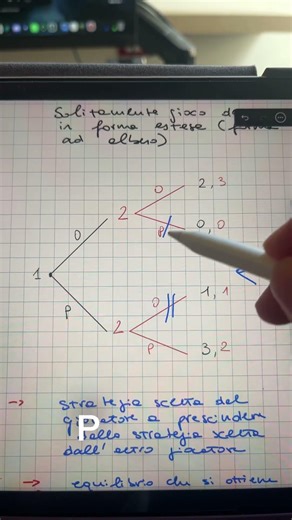 Solitamente gioco
in forma estesa (forma
ad albero)
O 2,3
2
P 0,0
O
1
P O 1,1
2
P 3,2
→ strategia scelta del
giocatore a prescindere
dalla strategia scelta
dall'altro giocatore
P
→ equilibrio che si ottiene